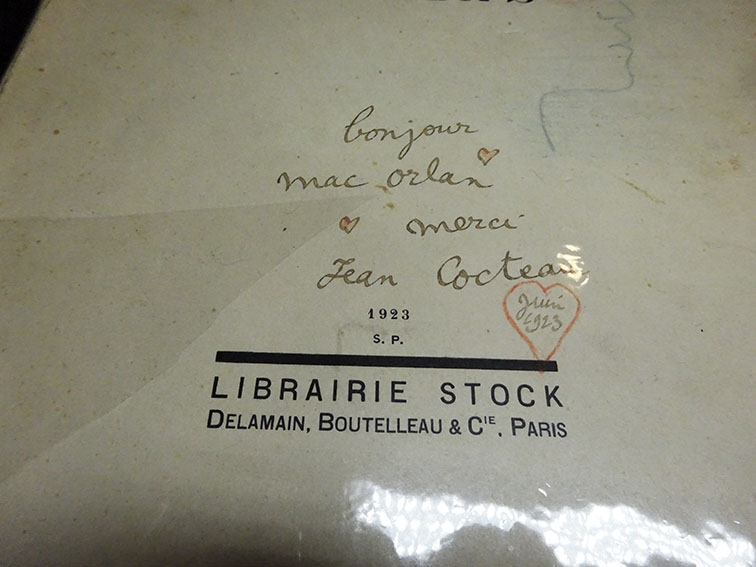 bonjour
mac orlan
merci
Jean Cocteau
Juin
1923
1923
S. P.
LIBRAIRIE STOCK
DELAMAIN, BOUTELLEAU & CIE, PARIS